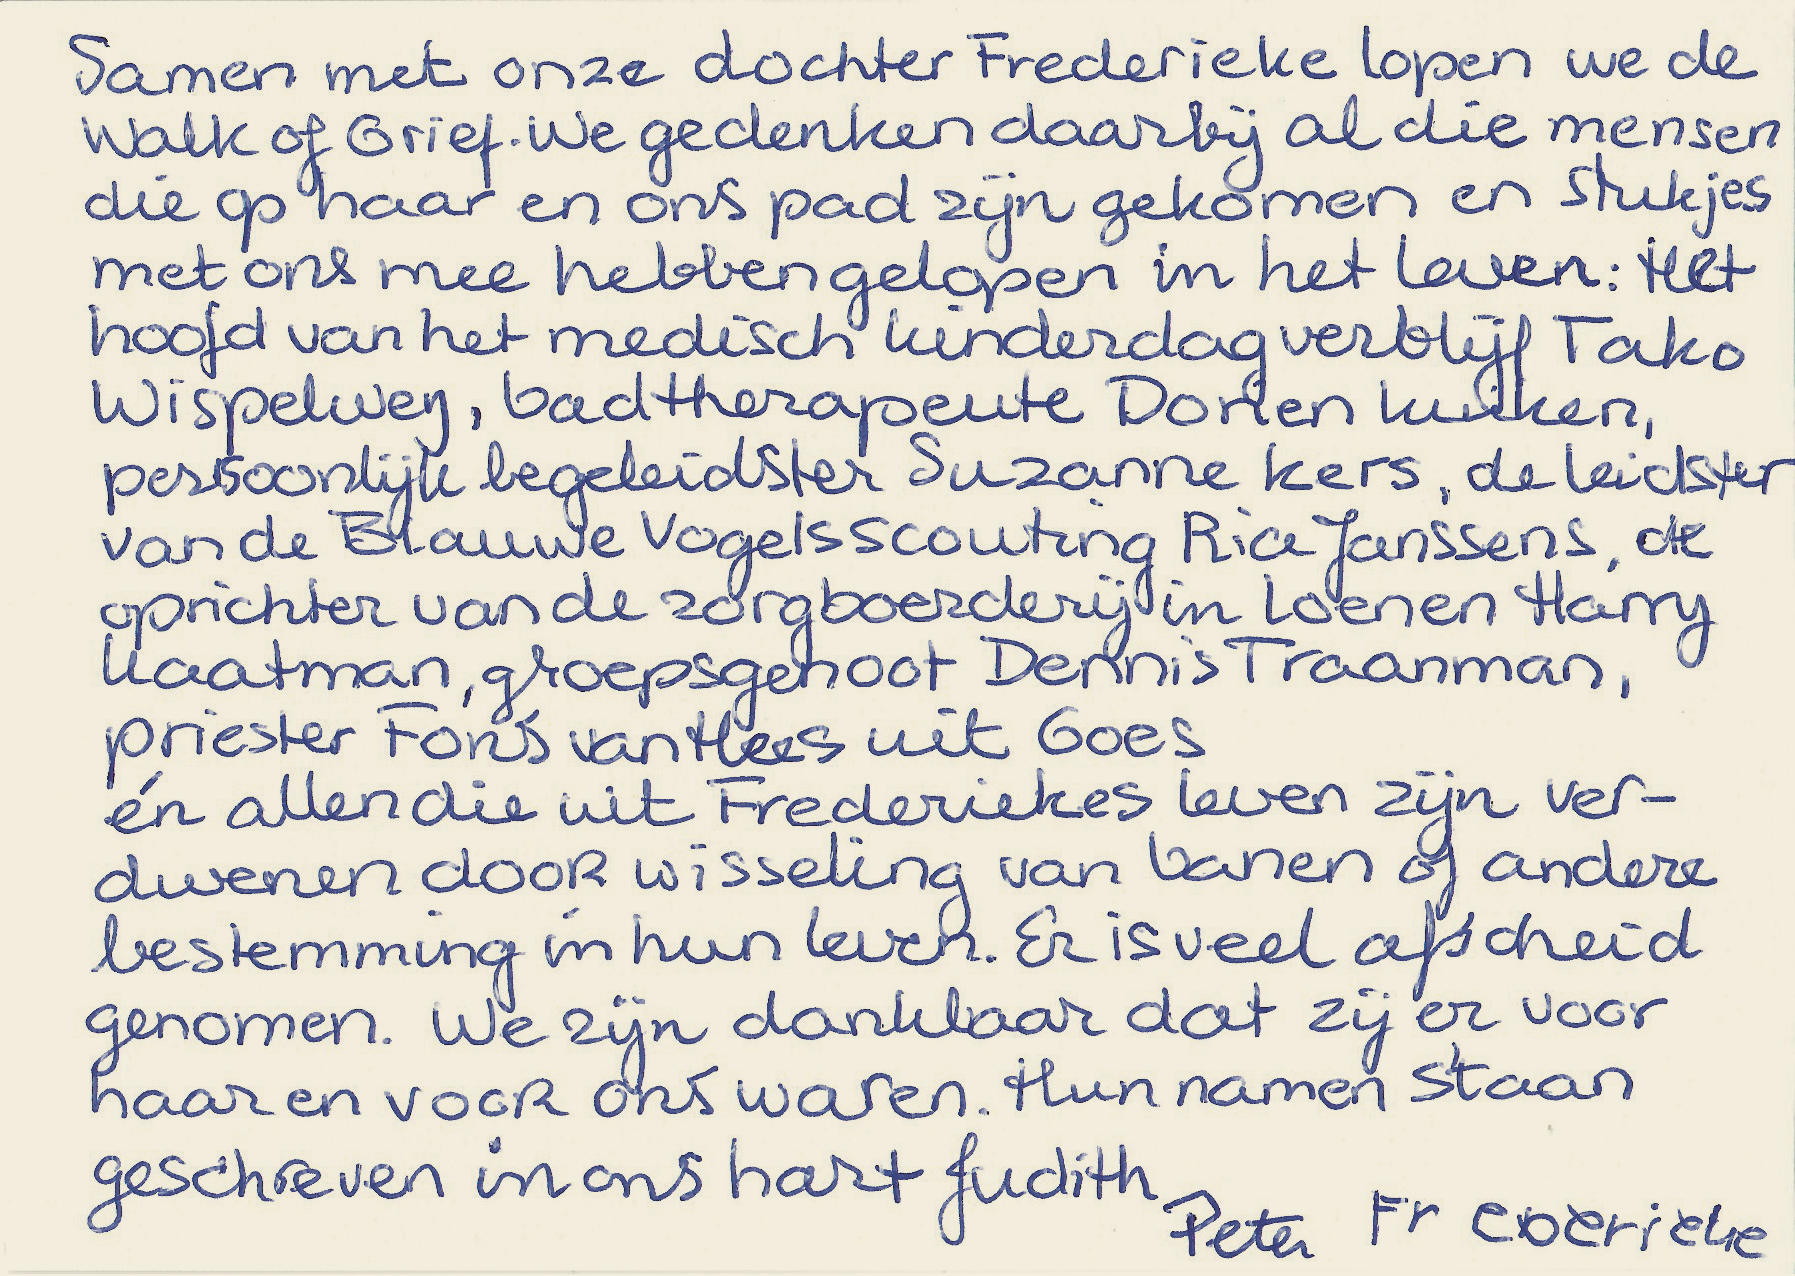 Samen met onze dochter Frederieke lopen we de
Walk of Grief. We gedenken daarbij al die mensen
die op haar en ons pad zijn gekomen en stukjes
met ons mee hebben gelopen in het leven: Het
hoofd van het medisch kinderdagverblijf Tako
Wispelwey, badtherapeute Dorien Kuiken,
persoonlijk begeleidster Suzanne Kers, de leidster
van de Blauwe Vogelsscouting Ria Janssens, de
oprichter van de zorgboerderij in Loenen Harry
Kaatman, groepsgenoot Dennis Traanman,
priester Fons van Hees uit Goes
én allen die uit Frederiekes leven zijn ver-
dwenen door wisseling van banen of andere
bestemming in hun leven. Er is veel afscheid
genomen. We zijn dankbaar dat zij er voor
haar en voor ons waren. Hun namen staan
geschreven in ons hart Judith
Peter Frederieke